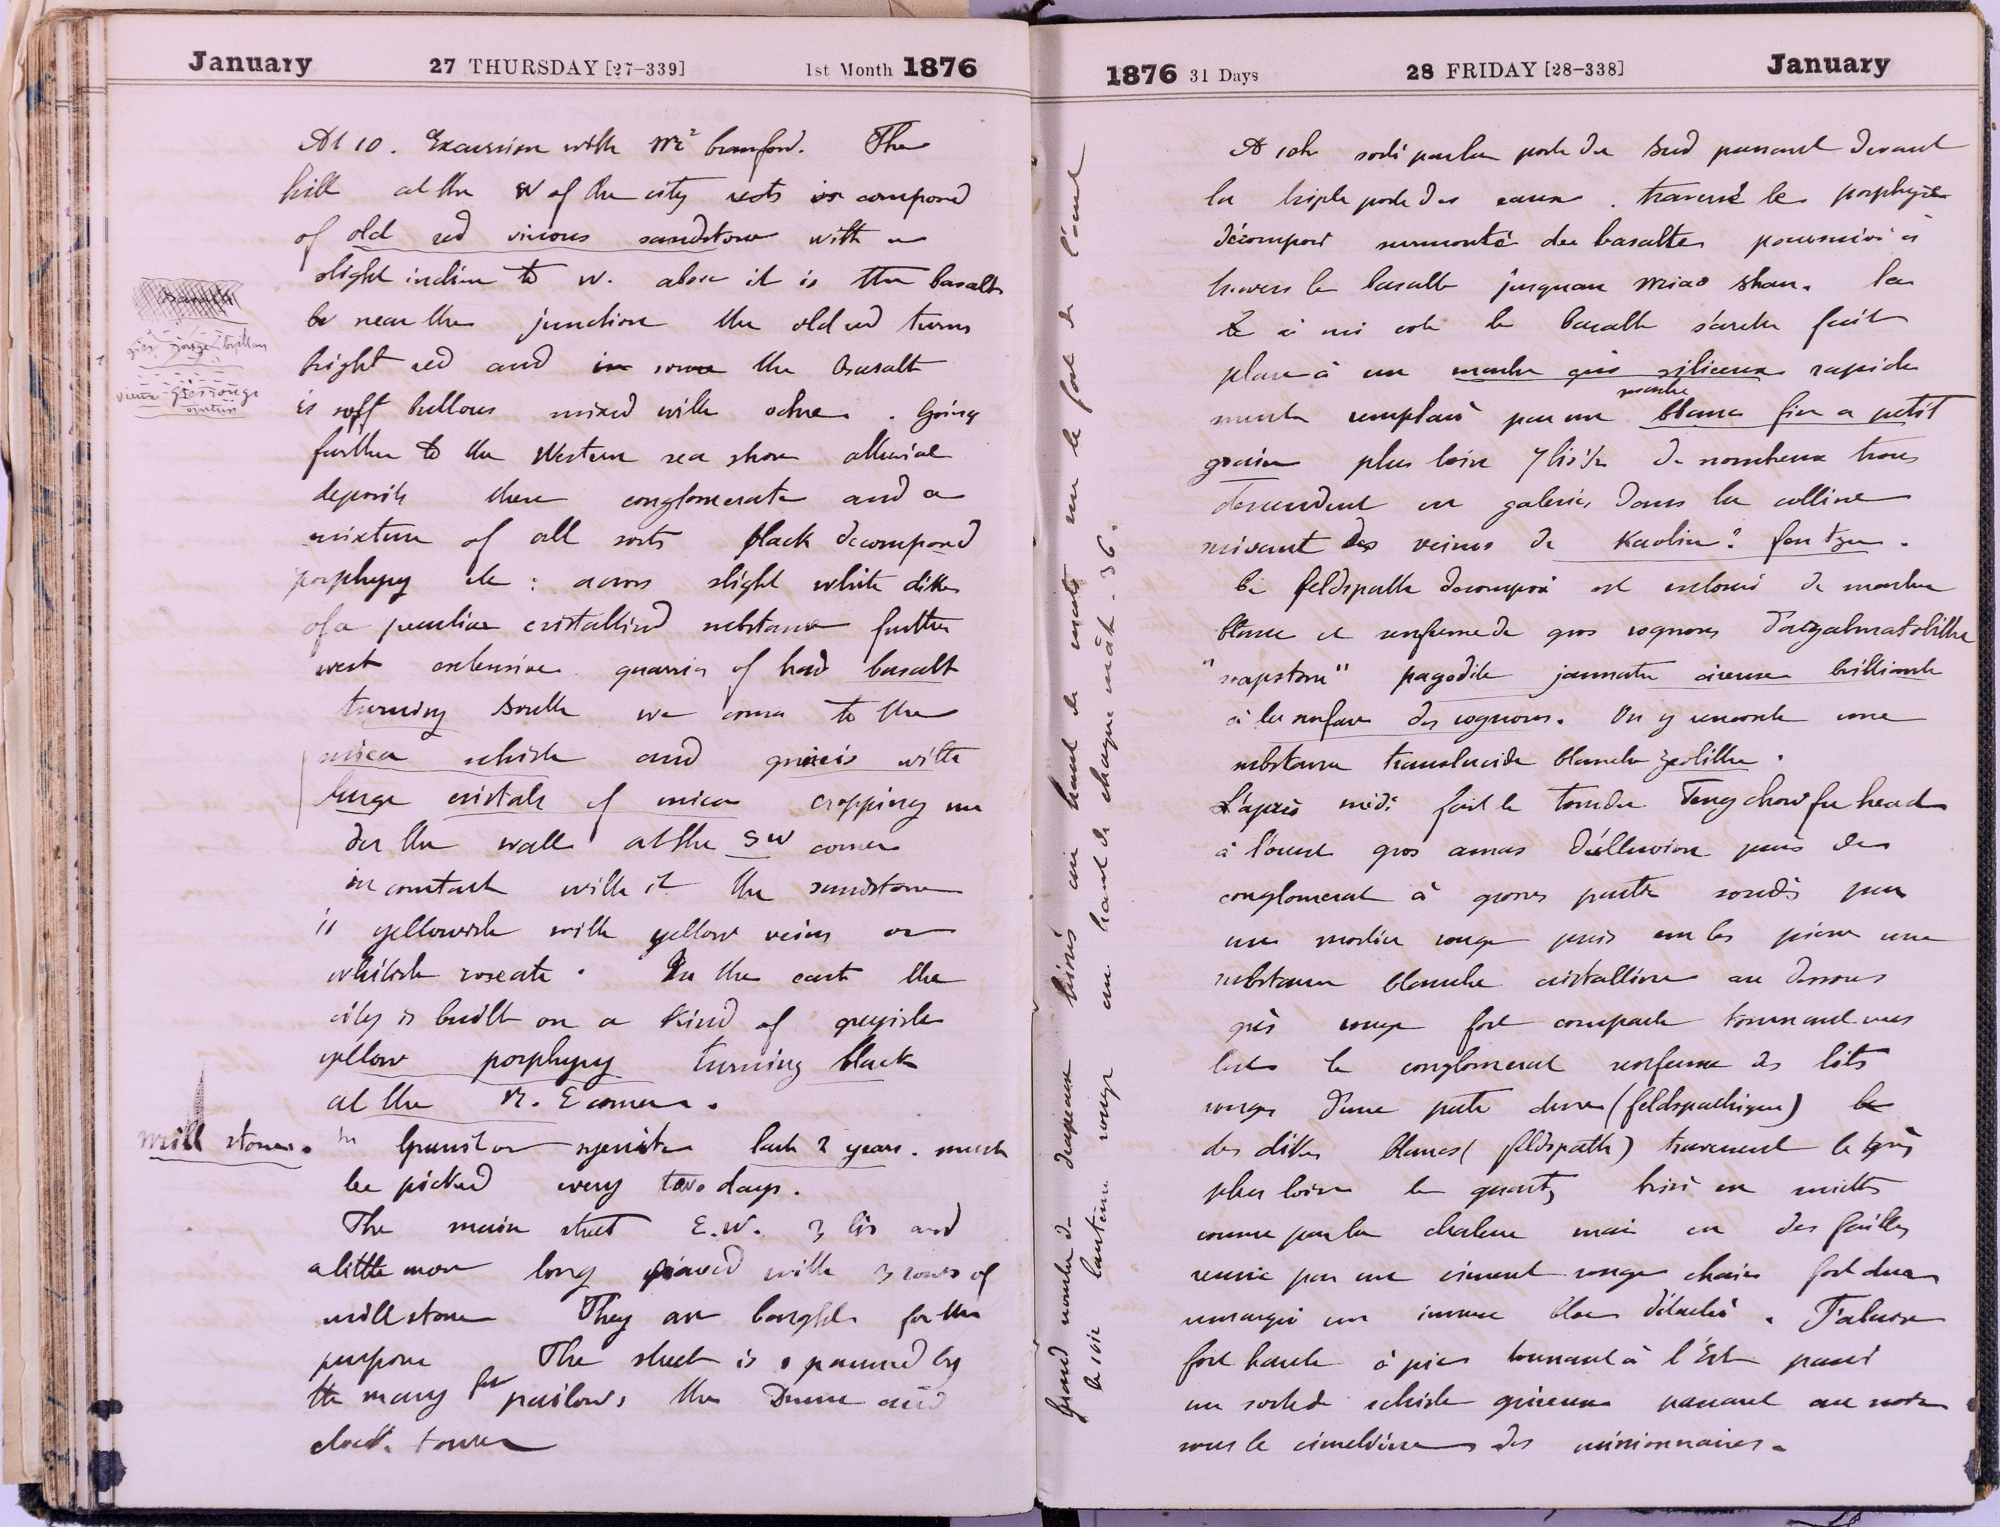 January 27 THURSDAY [27-339] 1st Month 1876
At 10. Excursion with Mr Crawford. The
hill at the W of the city rests is composed
of old red vinous sandstone with a
slight incline to W. above it is the basalt
near the junction the old red turns
bright red and in some the Basalt
is soft bullous mixed with ochre. Going
further to the Western sea shore alluvial
deposits there conglomerate and a
mixture of all sorts black decomposed
porphyry etc: across slight white dikes
of a peculiar cristallized substance further
west extensive quarries of hard basalt
turning South we come to the
mica schist and gneiss with
large cristals of mica cropping un
der the wall at the SW corner
in contact with it the sandstone
is yellowish with yellow veins or
whitish roseate. In the east the
city is built on a kind of greyish
yellow porphyry turning black
at the N. E corner.
mill stones. in Granit or syenite last 2 years. must
be picked every two days.
The main street E.W. 3 lis and
a little more long paved with 3 rows of
millstone They are bought for the
purpose The street is spanned by
the many fat pailows the Drum and
clock tower
Basalt
grès rouge brillant
vieux grès rouge
vineux
1876 31 Days 28 FRIDAY [28-338] January
A 10h sorti par la porte du Sud passant devant
la triple porte des eaux. traversé le porphyre
décomposé surmonté de basalte poursuivi à
travers le basalte jusquau Miao Shan. La
à mi cote le basalte s'arrete fait
place à un marbre gris siliceux rapide
ment remplacé par un marbre blanc fin a petit
grain plus loin 7 lis 1/2 de nombreux trous
descendent en galeries dans la colline
suivant des veines de Kaolin? fen tzu.
Ce feldspath decomposé est enclavé de marbre
blanc et renferme de gros rognons d'aegalmatolithe
"soapstone" pagodite jaunatre cireuse brillante
à la surface des rognons. On y rencontre une
substance translucide blanche zeolithe.
L'après midi fait le tour du Teng chow fu head
à l'ouest gros amas d'alluvion puis du
conglomerat à grosses parties soudés par
un mortier rouge puis sur les pierres une
substance blanche cristalline au dessous
grès rouge fort compacte tournant vers
l'est le conglomerat renferme des lits
rouges d'une pate dure (feldspathique)
des dikes blancs (feldspath) traversent le grès
plus loin le quartz brisé en miettes
comme par la chaleur mais en des failles
reunie par un ciment rouge chair fort dur
remarqué un immense bloc détaché. Falaise
fort haute à pic tournant à l'Est passé
un sorte de schiste gneisseux passant au noir
sous le cimetière des missionnaires.
Grand nombre de drapeaux hissés au haut de mats sur le fort de l'ouest
le soir lanterne rouge au haut de chaque mât. 36.